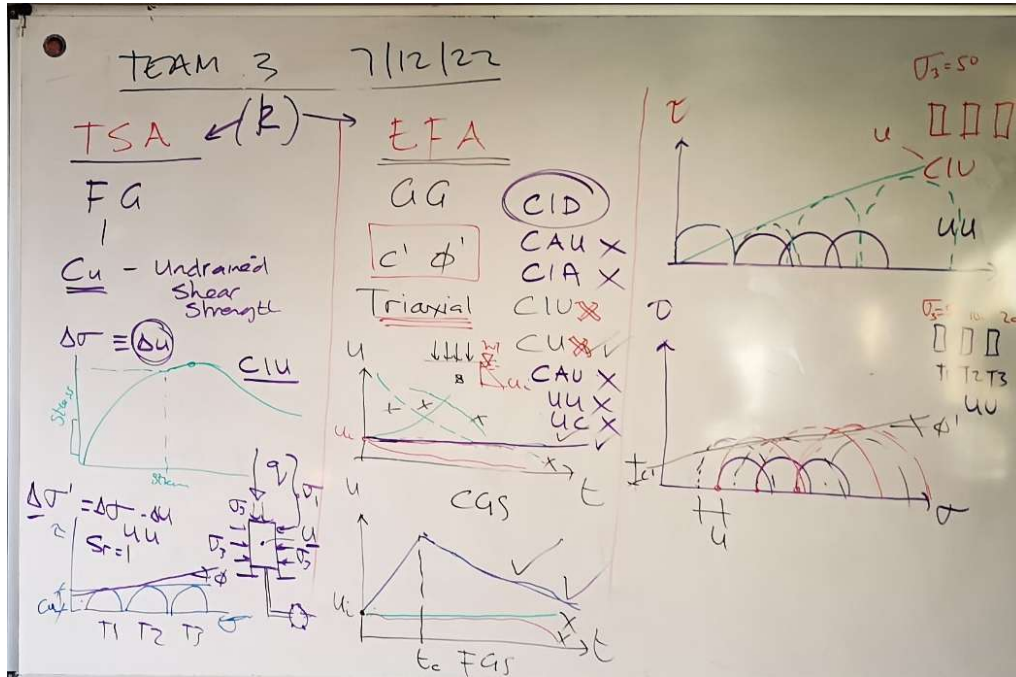 TEAM 3 7/12/22
TSA ← (k) → EFA
FG
Cu - Undrained
Shear
Strength
Δσ ≡ Δu
CIU
Stress
Strain
Δσ' = Δσ - Δu
UU
Sr=1
q
σ3
σ1
u
σ3
σ3
ϕ
Cu
σ
T1 T2 T3
GG
c' ϕ'
Triaxial
CID
CAU X
CIA X
CIU X
CU X ✓
CAU X
UU X
UC X
u
ui
ui
X
t
CGS
u
ui
X
X
t
tc FGS
σ3=50
τ
u
CIU
UU
τ
T1 T2 T3
UU
ϕ'
c'
u
σ